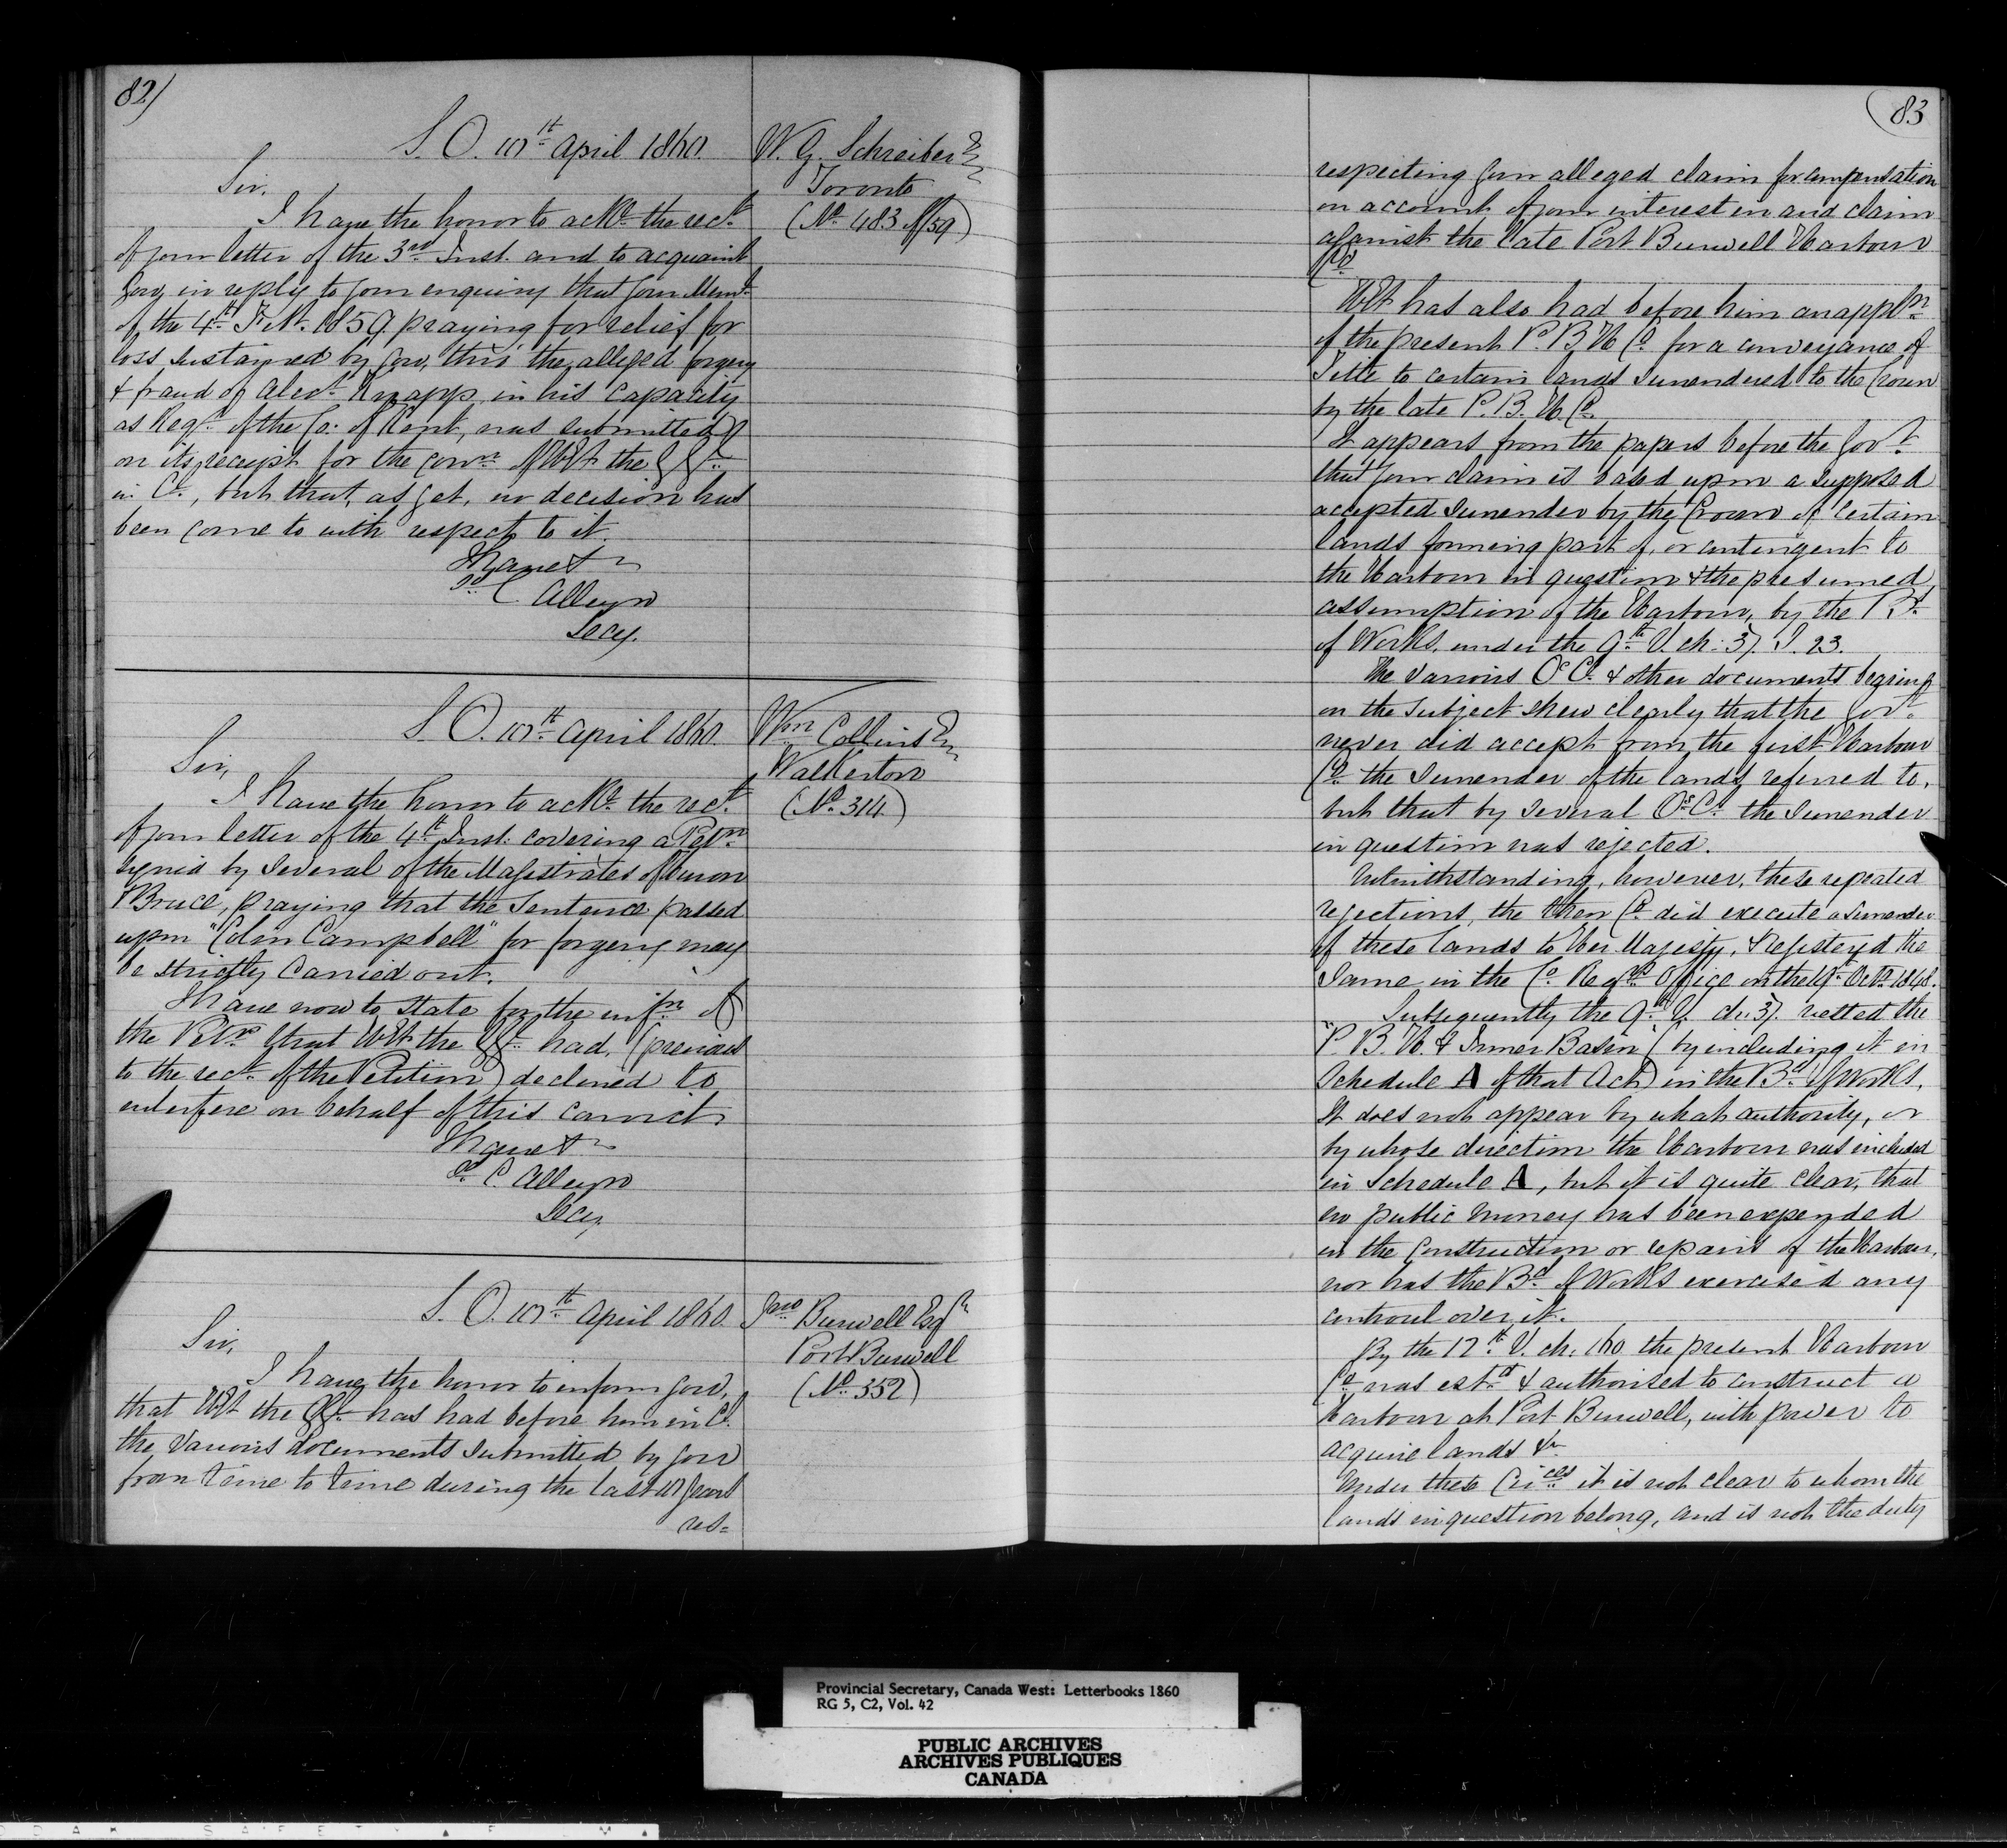 82)
S.O. 10th April 1860.
W. G. Schreiber Esq
Toronto
(No 483 of 59)
Sir,
I have the honor to ackge the rect
of your letter of the 3rd Inst. and to acquaint
you, in reply to your enquiry that your Meml
of the 4th Feb. 1859 praying for relief for
loss sustained by you, thro' the alleged forgery
& fraud of Alexr Knapp in his capacity
as Regr of the Co: of Kent, was submitted
on its receipt for the conn of HE the GG
in Cl., but that, as yet, no decision has
been come to with respect to it.
I have &c
Sd C. Alleyn
Secy.
S.O. 10th April 1860.
Wm Collins Esq
Walkerton
(No 314)
Sir,
I have the honor to ackge the rect
of your letter of the 4th Inst. covering a Petn
signed by several of the Magistrates of Huron
& Bruce, praying that the Sentence passed
upon "Colin Campbell" for forgery may
be strictly carried out.
I have now to state for the infn of
the Petrs that HE the GG had, (previous
to the rect of the Petition) declined to
interfere on behalf of this convict
I have &c
Sd C. Alleyn
Secy
S.O. 10th April 1860.
Jno Burwell Esqr
Port Burwell
(No 352)
Sir,
I have the honor to inform you,
that HE the GG has had before him in Cl.
the various documents submitted by you
from time to time during the last 10 years
res=
83
respecting your alleged claim for compensation
on account of your interest in and claim
against the late Port Burwell Harbour
Co
HE has also had before him an appln
of the present P. B. H. Co. for a conveyance of
Title to certain lands surrendered to the Crown
by the late P. B. H. Co.
It appears from the papers before the Govt
that your claim is based upon a supposed
accepted surrender by the Crown of certain
lands forming part of, or contingent to
the Harbour in question & the presumed
assumption of the Harbour, by the Bd
of Works, under the 9th V. ch: 37. S. 23.
The various Os C. & other documents bearing
on the subject shew clearly that the Govt
never did accept from the first Harbour
Co. the surrender of the lands referred to,
but that by several Os C. the surrender
in question was rejected.
Notwithstanding, however, these repeated
rejections, the then Co. did execute a surrender
of these lands to Her Majesty, & Registery'd the
same in the Co. Regrs Office on the 19th Octr 1848.
Subsequently the 9th V. ch. 37. vested the
"P. B. H. & Inner Basin" (by including it in
Schedule A of that Act) in the Bd of Works.
It does not appear by what authority, or
by whose direction the Harbour was included
in Schedule A, but it is quite clear, that
no public money has been expended
in the construction or repairs of the Harbour,
nor has the Bd of Works exercised any
controul over it.
By the 12th V. ch: 160 the present Harbour
Co was estd & authorised to construct a
Harbour at Port Burwell, with power to
acquire lands &c
Under these Circes it is not clear to whom the
lands in question belong, and is not the duty
Provincial Secretary, Canada West: Letterbooks 1860
RG 5, C2, Vol. 42
PUBLIC ARCHIVES
ARCHIVES PUBLIQUES
CANADA